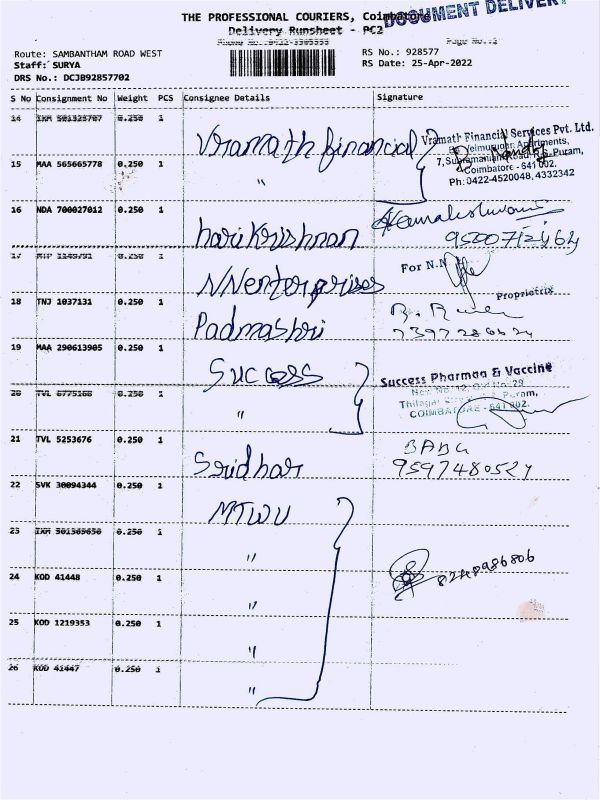 THE PROFESSIONAL COURIERS, Coimbatore
DOCUMENT DELIVER
Delivery Runsheet - PC2
Route: SAMBANTHAM ROAD WEST
RS No.: 928577
Staff: SURYA
RS Date: 25-Apr-2022
DRS No.: DCJB92857702
S No Consignment No Weight PCS Consignee Details Signature
14 0.250 1 Vramath financial
Vramath Financial Services Pvt. Ltd.
Apartments,
15 MAA 565665778 0.250 1 "
Coimbatore - 641 002.
Ph: 0422-4520048, 4332342
16 NDA 700027012 0.250 1 hari Krishnan
17 0.250 1 N/N enterprises
For N.N
Proprietrix
18 TNJ 1037131 0.250 1 Padmashri
19 MAA 290613905 0.250 1 Success
Success Pharmaa & Vaccine
20 TVL 6775168 0.250 1 "
COIMBATORE - 641 002.
21 TVL 5253676 0.250 1 Sridhar
BABU
9597480527
22 SVK 30094344 0.250 1 MTWU
23 0.250 1 "
24 KOD 41448 0.250 1 "
8248986806
25 KOD 1219353 0.250 1 "
26 KOD 41447 0.250 1 "